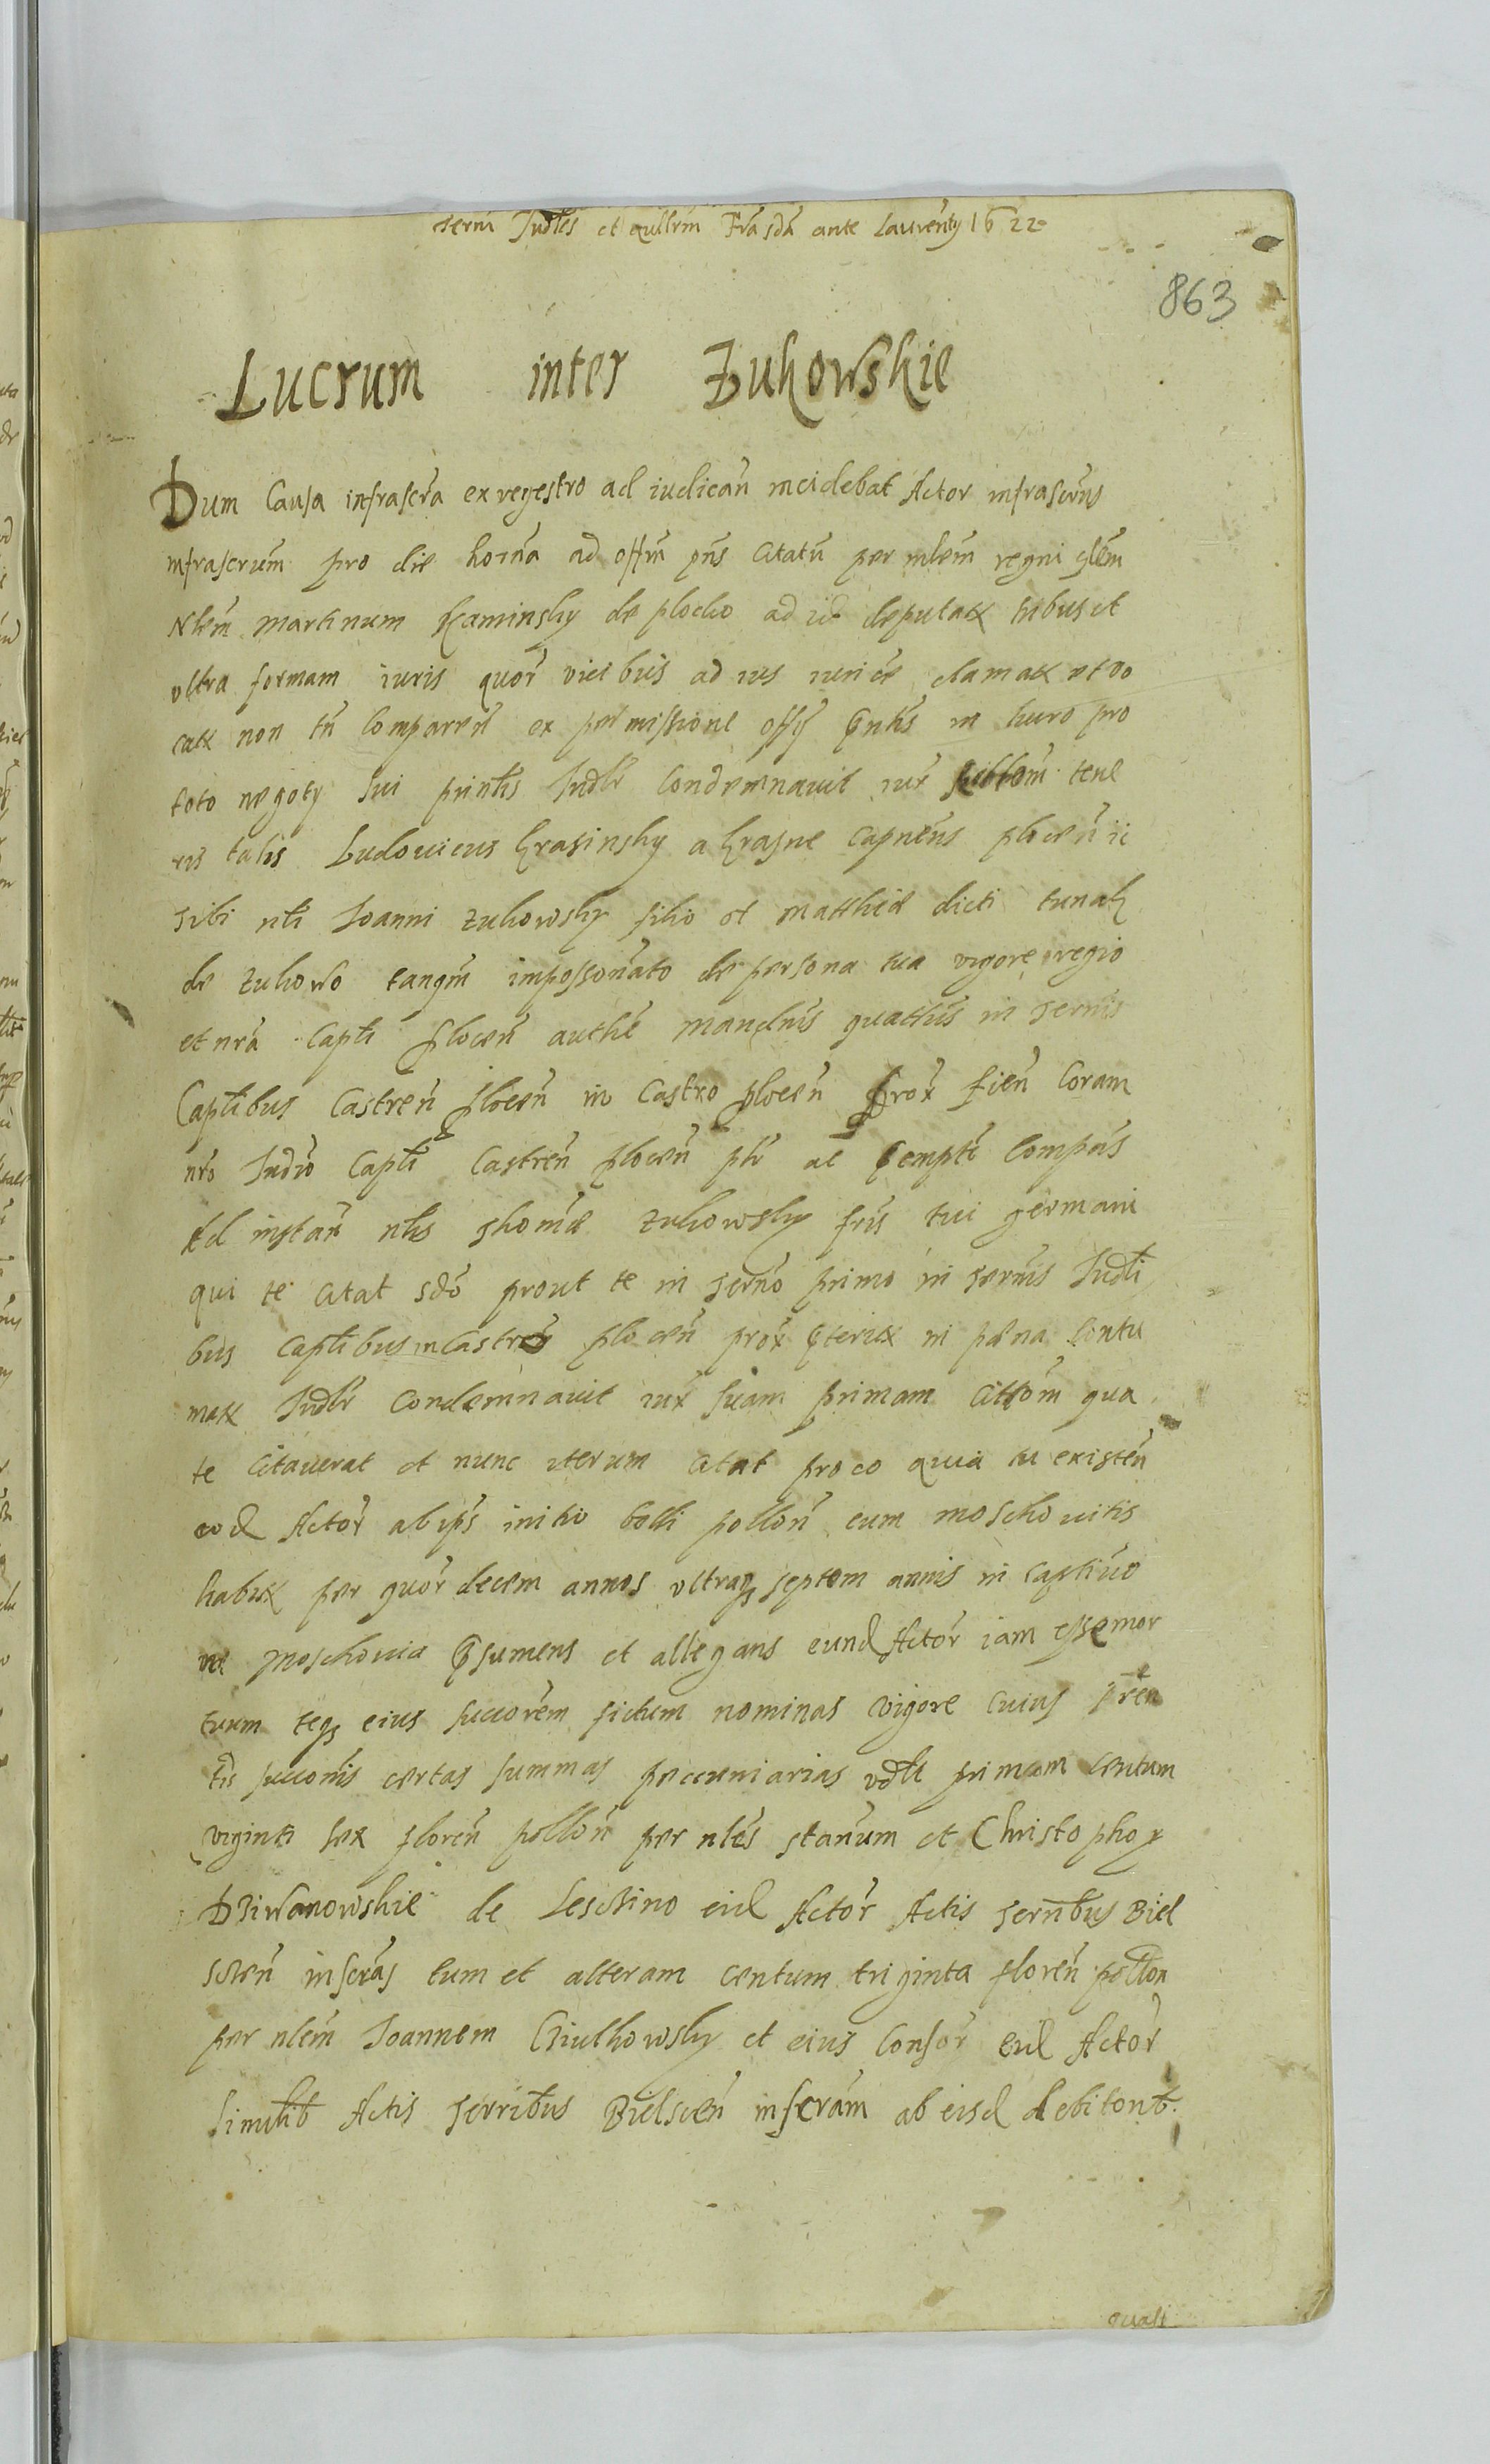 termi Judles et qullrm Fra sda ante Laurenty 1622
863
Lucrum inter Zukowskie
Dum Causa infrascra ex regestro ad iudican incidebat Actor infrascrus
infrascrum pro die horna ad offm pns citatu per mlem regni glem
Nlem Martinum Kaminsky de plocko ad id deputat tribus et
ultra formam iuris quor vicibus ad ius iurice clamat et vo
cat non tn Comparen ex permissione offy pntis in lucro pro
toto negoty sui printis Judlr Condemnavit iux teno
ris talis Ludovicus Krasinsky a Krasne Capneus plocen
tibi nli Joanni Zukowsky filio ol Matthiae dicti kunak
de Zukowo tanqm impossonato de persona tua vigore regio
et nra Capti plocen authe mandnis quattus in termis
Captibus Castren plocen in Castro plocen prox fien Coram
nro Judio Capti Castren plocen plr ac pempte Compas
Ad instan nlis Thomae Zukowsky fris tui germani
qui te citat sdo prout te in termo primo in termis Judli
bus Captibus in Castren plocen prox pterit in paena Contu
mat Judlr Condemnavit iux suam primam Citttom qua
te Citaverat et nunc iterum citat pro eo quia tu existen
eod Actor ab ips initio belli pollon cum Moschovitis
habit per quor decem annos ultraq septem annis in captivo
ne Moschovia psumens et allegans eund Actor iam esse mor
tuum teq eius succorem fictum nominas vigore cuius pren
tis succonis certas summas peccuniarias vdlt primam Centum
viginti sex floren pollon per nles Stanum et Christophor
Dziwanowskie de Lesczino eid Actor Actis terribus Biel
scen inscras tum et alteram centum triginta floren pollon
per nlem Joannem Cziulkowsky et eius Consor eid Actor
similit Actis terribus Bielscen inscram ab eisd debitorib
quasi